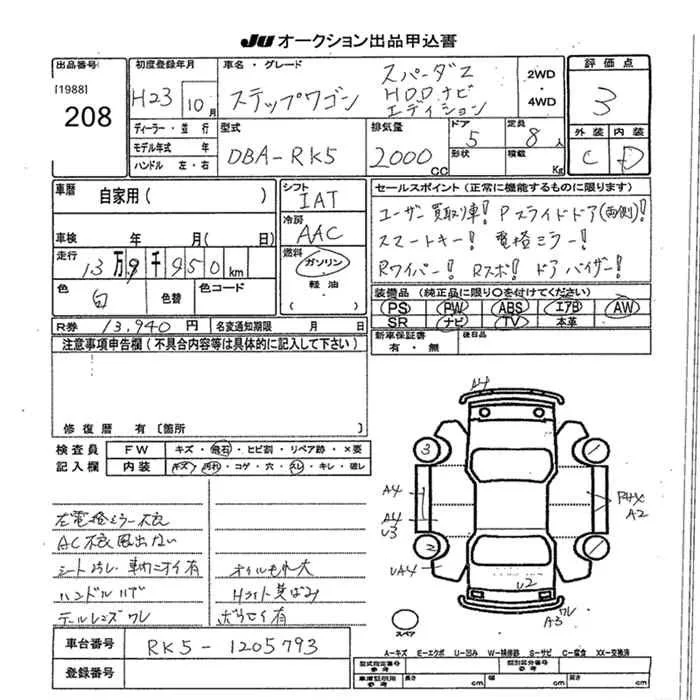 JU オークション出品申込書
出品番号
[1988]
208
初度登録年月
H23 10月
車名・グレード
ステップワゴン
スパーダZ
HDDナビ
エディション
2WD
・
4WD
評価点
3
外装 内装
C D
ディーラー・並行
モデル年式 年
ハンドル 左・右
型式
DBA-RK5
排気量
2000
CC
ドア
5
形状
定員
8人
積載
Kg
車歴 自家用( )
車検 年 月( 日)
走行
13万9千950km
色
白
色替
色コード
シフト
IAT
冷房
AAC
燃料
ガソリン
・
軽油
・( )
セールスポイント(正常に機能するものに限ります)
ユーザー買取り車! Pスライドドア(両側)!
スマートキー! 電格ミラー!
Rワイパー! Rスポ! ドアバイザー!
装備品(純正品に限り○を付けてください)
PS PW ABS エアB AW
SR ナビ TV 本革
新車保証書
有・無
後日品
R券 13,940円 名変通知期限 月 日
注意事項申告欄(不具合内容等は具体的に記入して下さい)
修復歴 有〔箇所 〕
検査員
記入欄
FW キズ・飛石・ヒビ割・リペア跡・×要
内装 キズ・汚れ・コゲ・穴・スレ・キレ・破レ
左電格ミラー不良
AC不良風出ない
シート汚レ 車内ニオイ有
ハンドルハゲ
テールレンズワレ
オイルもれ大
Hライト黄ばみ
ボウセイ有
A4
3
1
A4
A4
U3
P4X
A2
2
2
UA4
U2
A3ワレ
スペア
車台番号 RK5-1205793
登録番号
A-キズ E-エクボ U-凹み W-補修跡 S-サビ C-腐食 XX-交換済
型式指定番号
参考
類別区分番号
参考
車庫証明用
参考
長さ cm 幅 cm 高さ cm